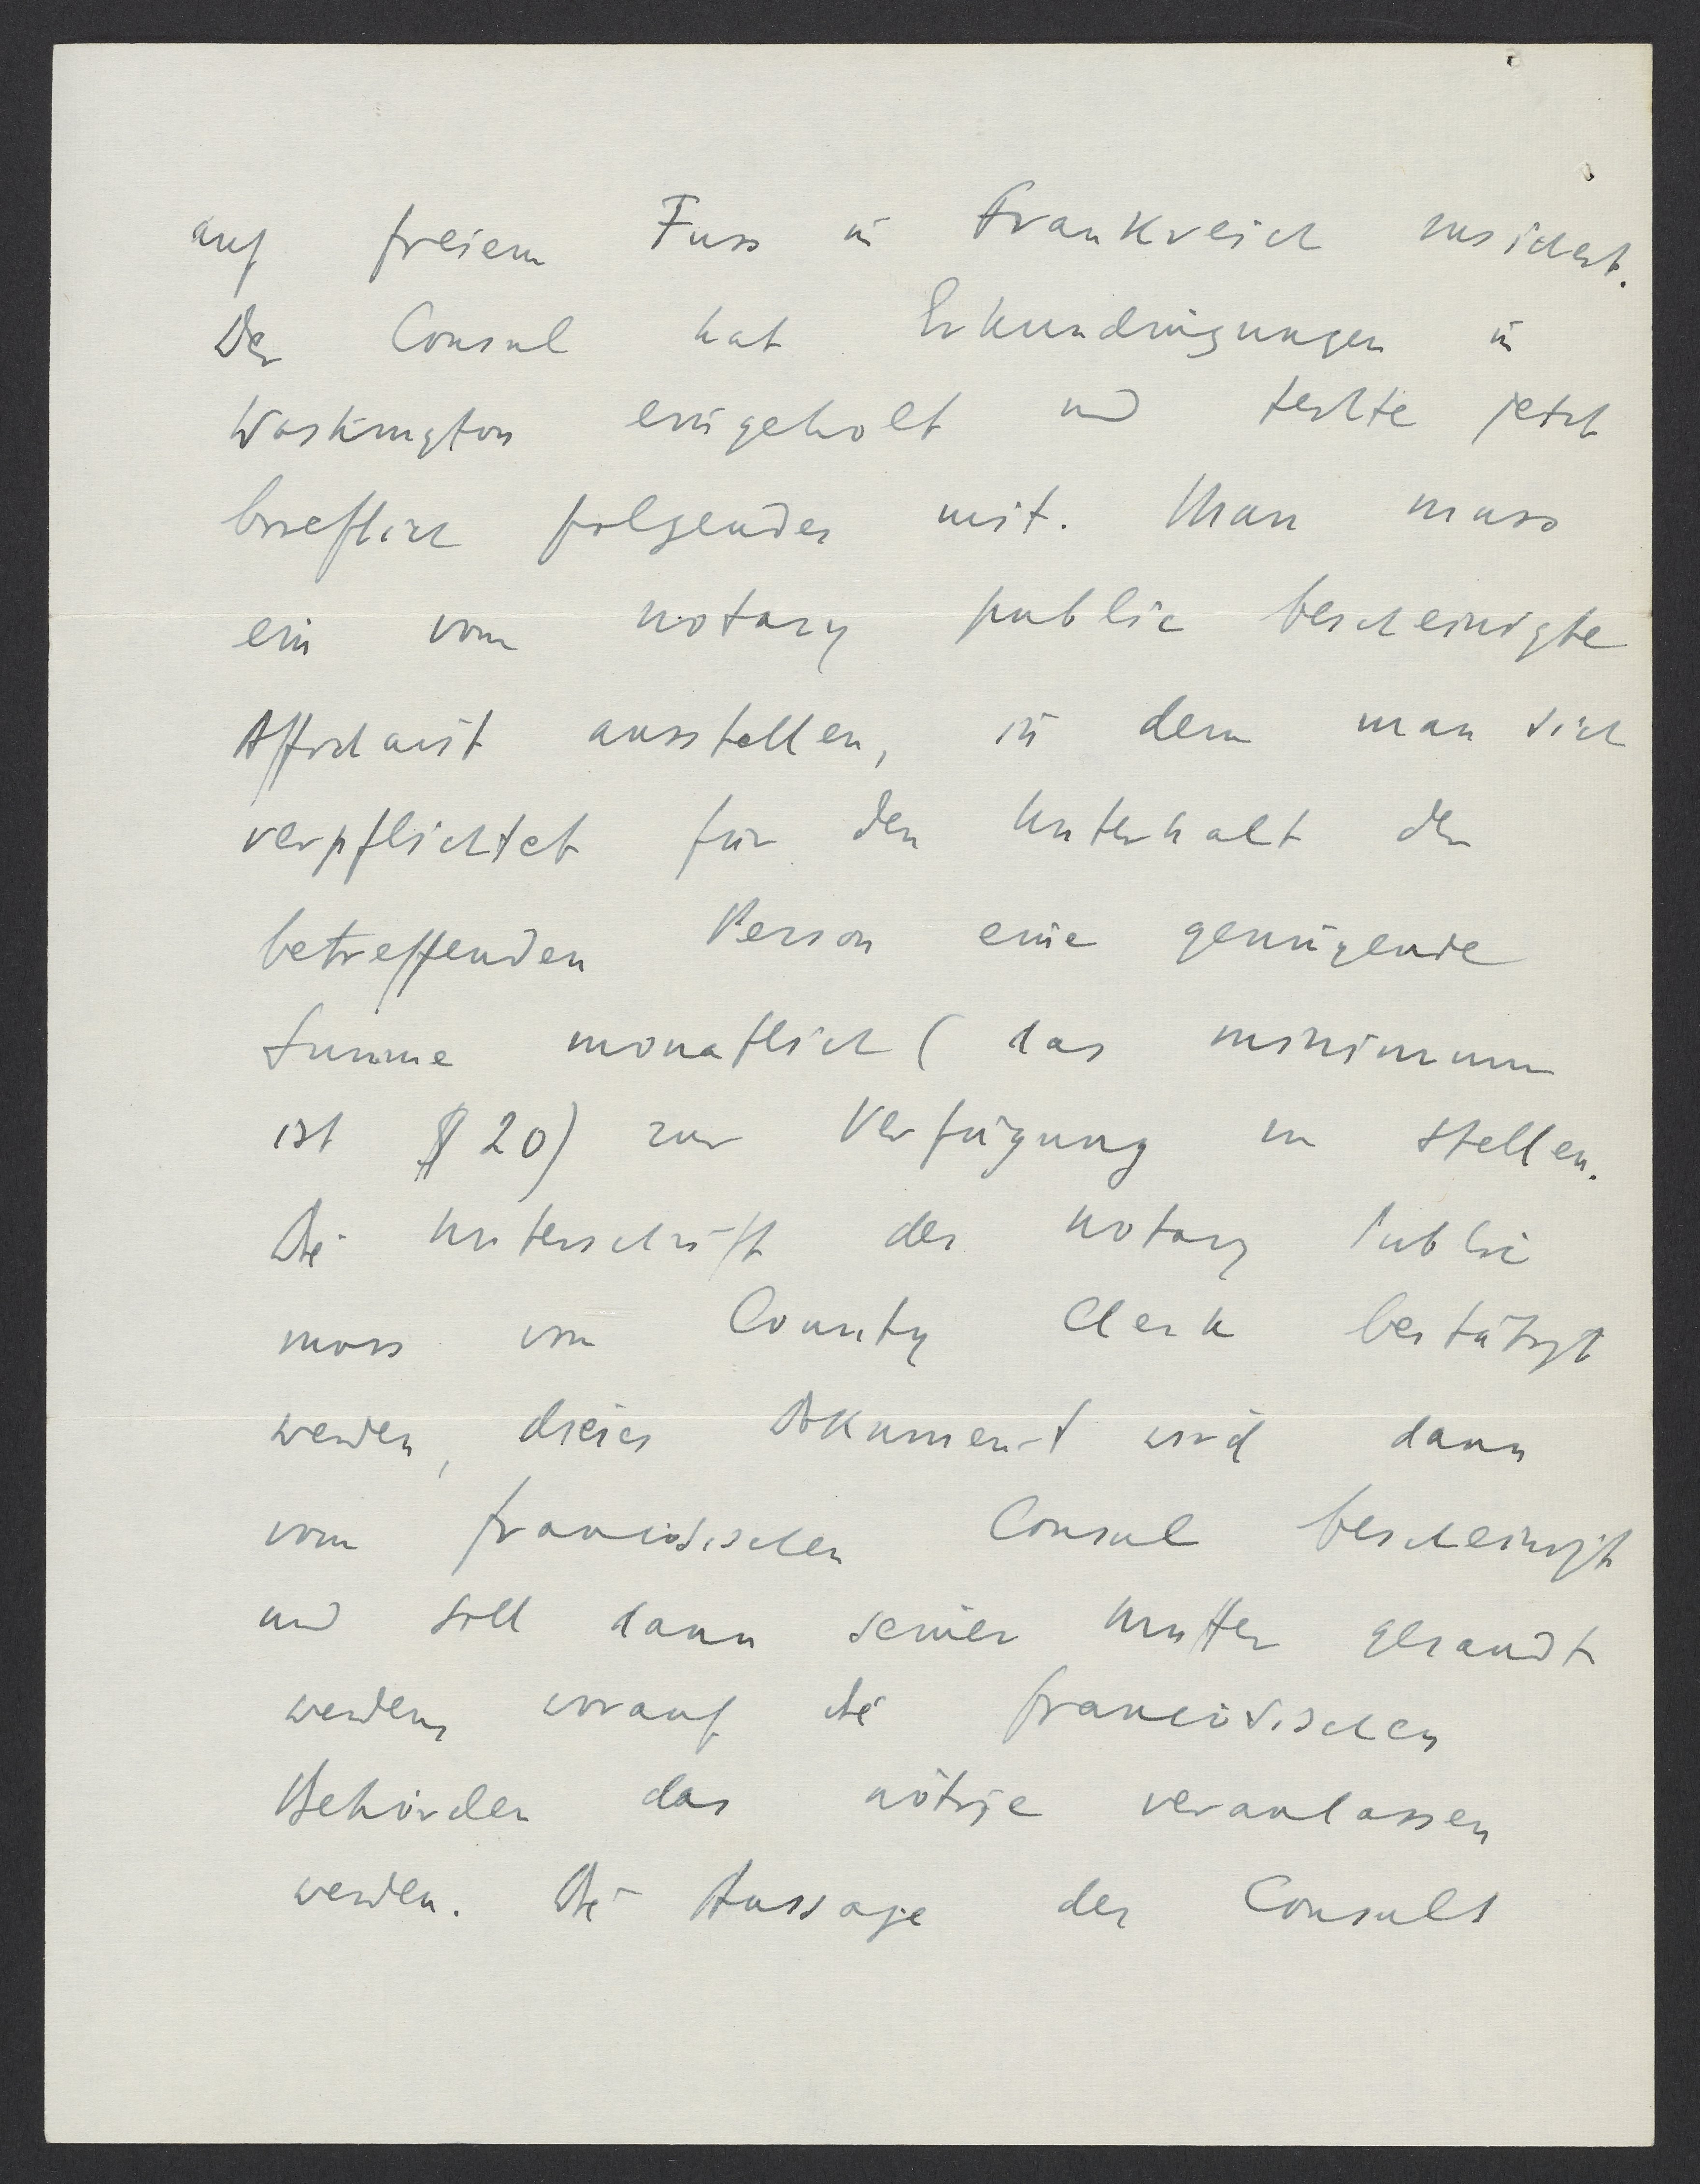 auf freiem Fuss in Frankreich zusichert.
Der Consul hat Erkundingungen in
Washington eingeholt und teilte jetzt
brieflich folgendes mit. Man muss
ein vom notary public bescheinigte
Affidavit ausstellen, in dem man sich
verpflichtet für den Unterhalt der
betreffenden Person eine genügende
Summe monatlich (das minimum
ist $ 20) zur Verfügung zu stellen.
Die Unterschrift des notary Public
muss vom County Clerk bestätigt
werden, dieses Dokument wird dann
vom französischen Consul bescheinigt
und soll dann seiner Mutter gesandt
werden, worauf die französischen
Behörden das nötige veranlassen
werden. Die Aussage des Consuls